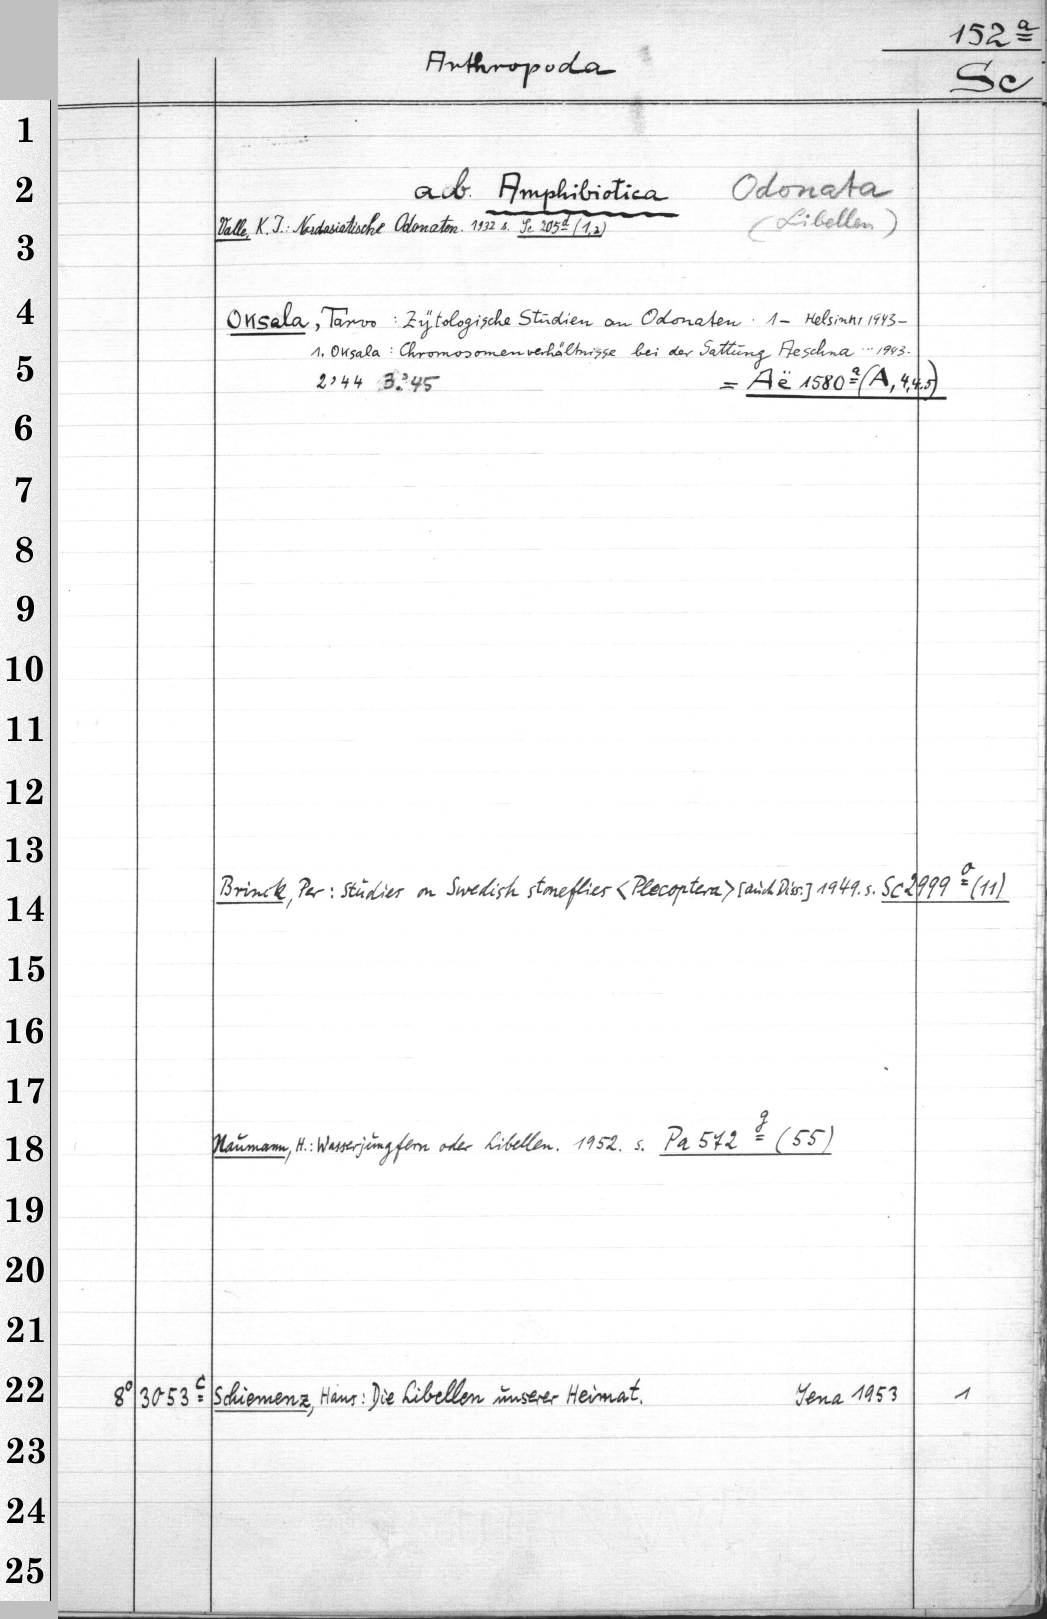 152 a
Arthropoda
Sc
1
2
a b. Amphibiotica Odonata
Valle, K. J.: Nordasiatische Odonaten. 1932 s. Sc 205 d (1,2)
(Libellen)
3
4
Oksala, Tarvo : Zytologische Studien an Odonaten . 1- Helsinki 1943-
1. Oksala : Chromosomenverhältnisse bei der Gattung Aeschna ... 1943.
5
2 : 44 3. : 45 = Aë 1580 a (A, 4,4.5)
6
7
8
9
10
11
12
13
Brinck, Per : Studies on Swedish stoneflies <Plecoptera> [auch Diss.] 1949. s. Sc 2999 o (11)
14
15
16
17
18 Naumann, H.: Wasserjungfern oder Libellen. 1952. s. Pa 572 g (55)
19
20
21
22 8° 3053 c Schiemenz, Hans : Die Libellen unserer Heimat. Jena 1953 1
23
24
25